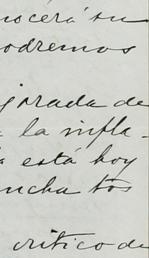 nocerá su
podremos
jorada de
la infla-
a está hoy
ucha tos
critico de